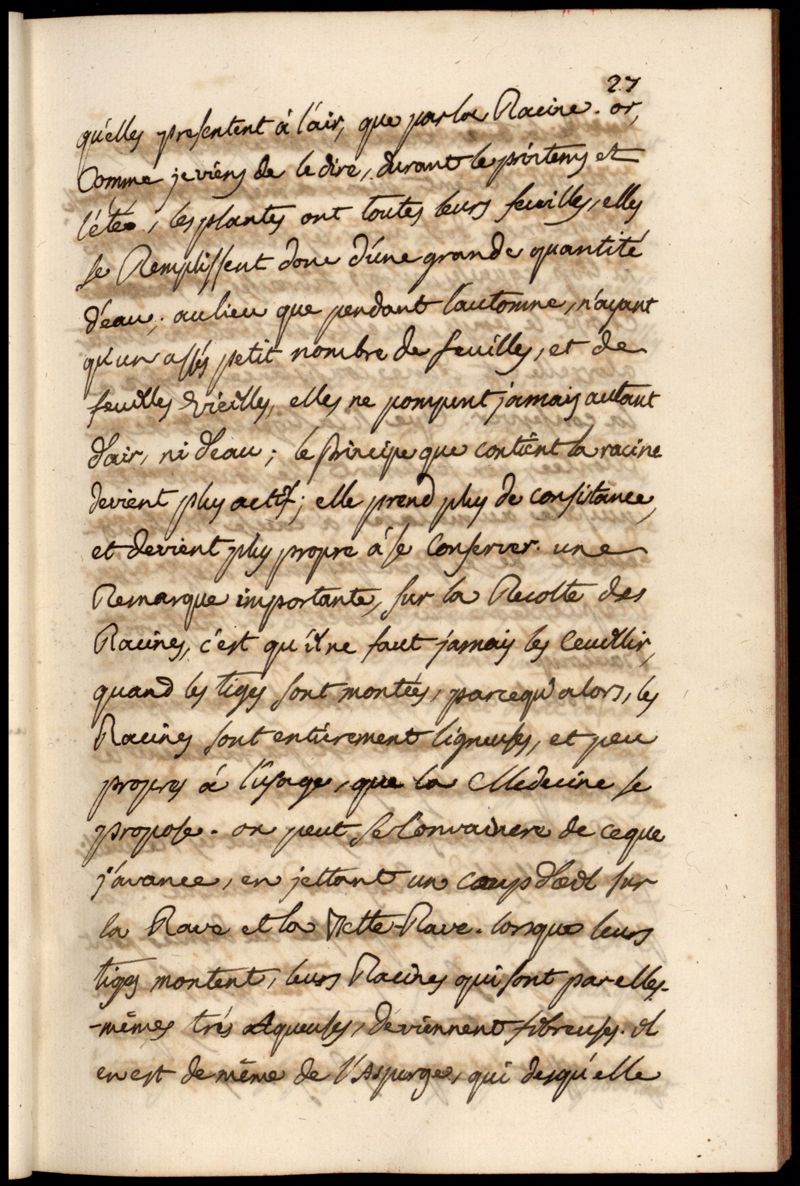 27
qu'elles presentent à l'air, que par la Racine. or,
Comme je viens de le dire, durant le printems et
l'été, les plantes ont toutes leurs feuilles, elles
se Remplissent donc d'une grande quantité
d'eau; au lieu que pendant l'automne, n'ayant
qu'un assés petit nombre de feuilles, et de
feuilles vieilles, elles ne pompent jamais autant
d'air, ni d'eau; le principe que contient la racine
devient plus actif; elle prend plus de consitance,
et devient plus propre à se Conserver. une
Remarque importante, sur la Recolte des
Racines, c'est qu'il ne faut jamais les Ceuillir,
quand les tiges sont montées, parcequ'alors, les
Racines sont entièrement ligneuses, et peu
propres à l'usage, que la Medecine se
propose. on peut se Convaincre de ce que
j'avance, en jettant un coup d'oeil sur
la Rave et la Bette-Rave. lorsque leurs
tiges montent, leurs Racines qui sont par elles-
-mêmes très Aqueuses, deviennent fibreuses. il
en est de même de l'Asperge, qui desqu'elle